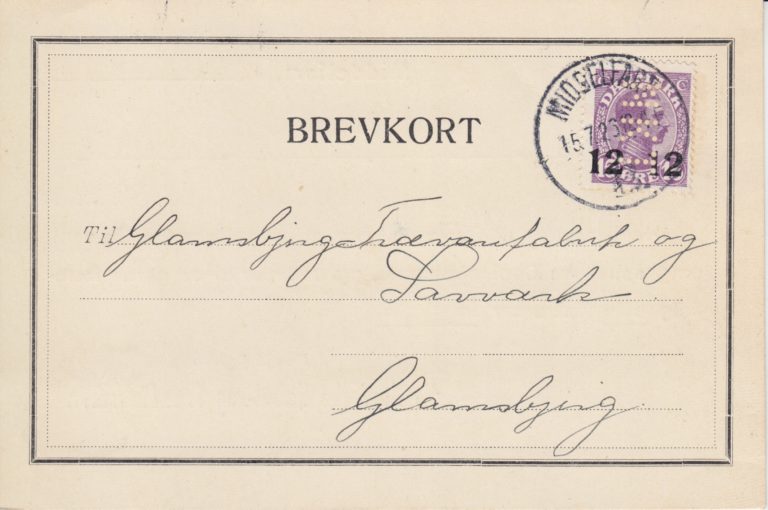 MIDDELFART
15.7.26
DANMARK
12 12
ØRE
BREVKORT
Til Glamsbjerg Trævarefabrik og
Savværk.
Glamsbjerg